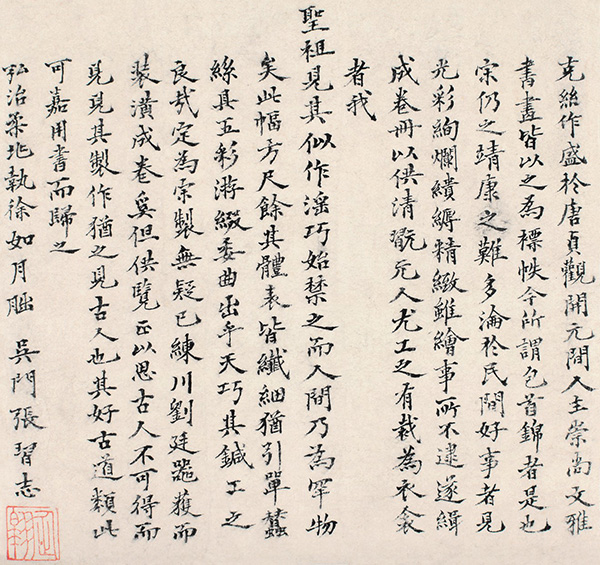 克絲作盛於唐貞觀開元間人主崇尚文雅
書畫皆以之為標帙今所謂包首錦者是也
宋仍之靖康之難多淪於民間好事者見
光彩絢爛繢縟精緻雖繪事所不逮遂緝
成卷冊以供清翫元人尤工之有裁為衣衾
者我
聖祖見其似作淫巧始禁之而人間乃為罕物
矣此幅方尺餘其體表皆纖細猶引單蠶
絲具五彩游綴委曲出乎天巧其鍼工之
良哉定為宋製無疑已練川劉廷器獲而
裝潢成卷奚但供覽正以思古人不可得而
見見其製作猶之見古人也其好古道類此
可嘉用書而歸之
弘治柔兆執徐如月朏 吳門張習志